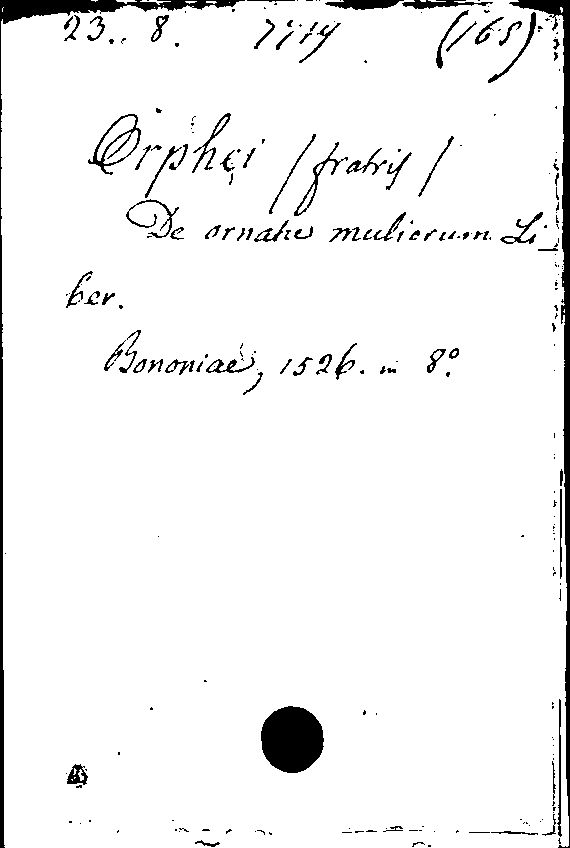 23. 8. 7719 (165)
Orphei / fratris /
De ornatu mulierum Li_
ber.
Bononiae, 1526. in 8º.